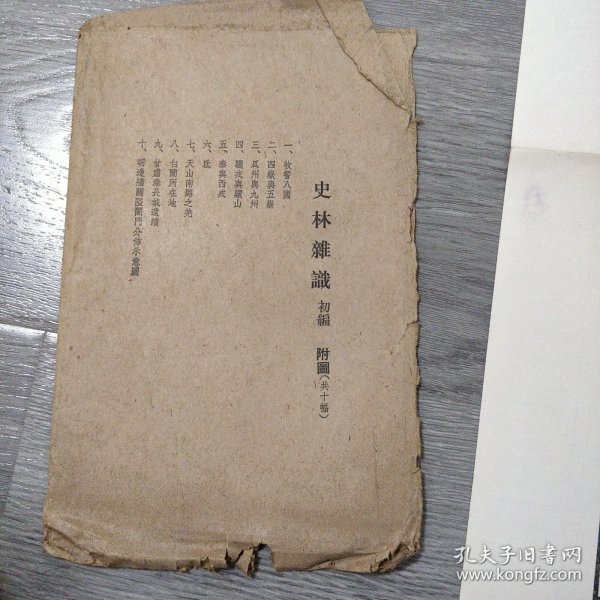 史林雜識 初編 附圖（共十幅）
一、牧誓八國
二、四嶽與五嶽
三、瓜州與九州
四、驪戎與驪山
五、秦與西戎
六、氐
七、天山南路之羌
八、白蘭所在地
九、甘肅秦長城遺蹟
十、明邊牆關隘關門分佈示意圖
孔夫子旧书网
www.kongfz.com